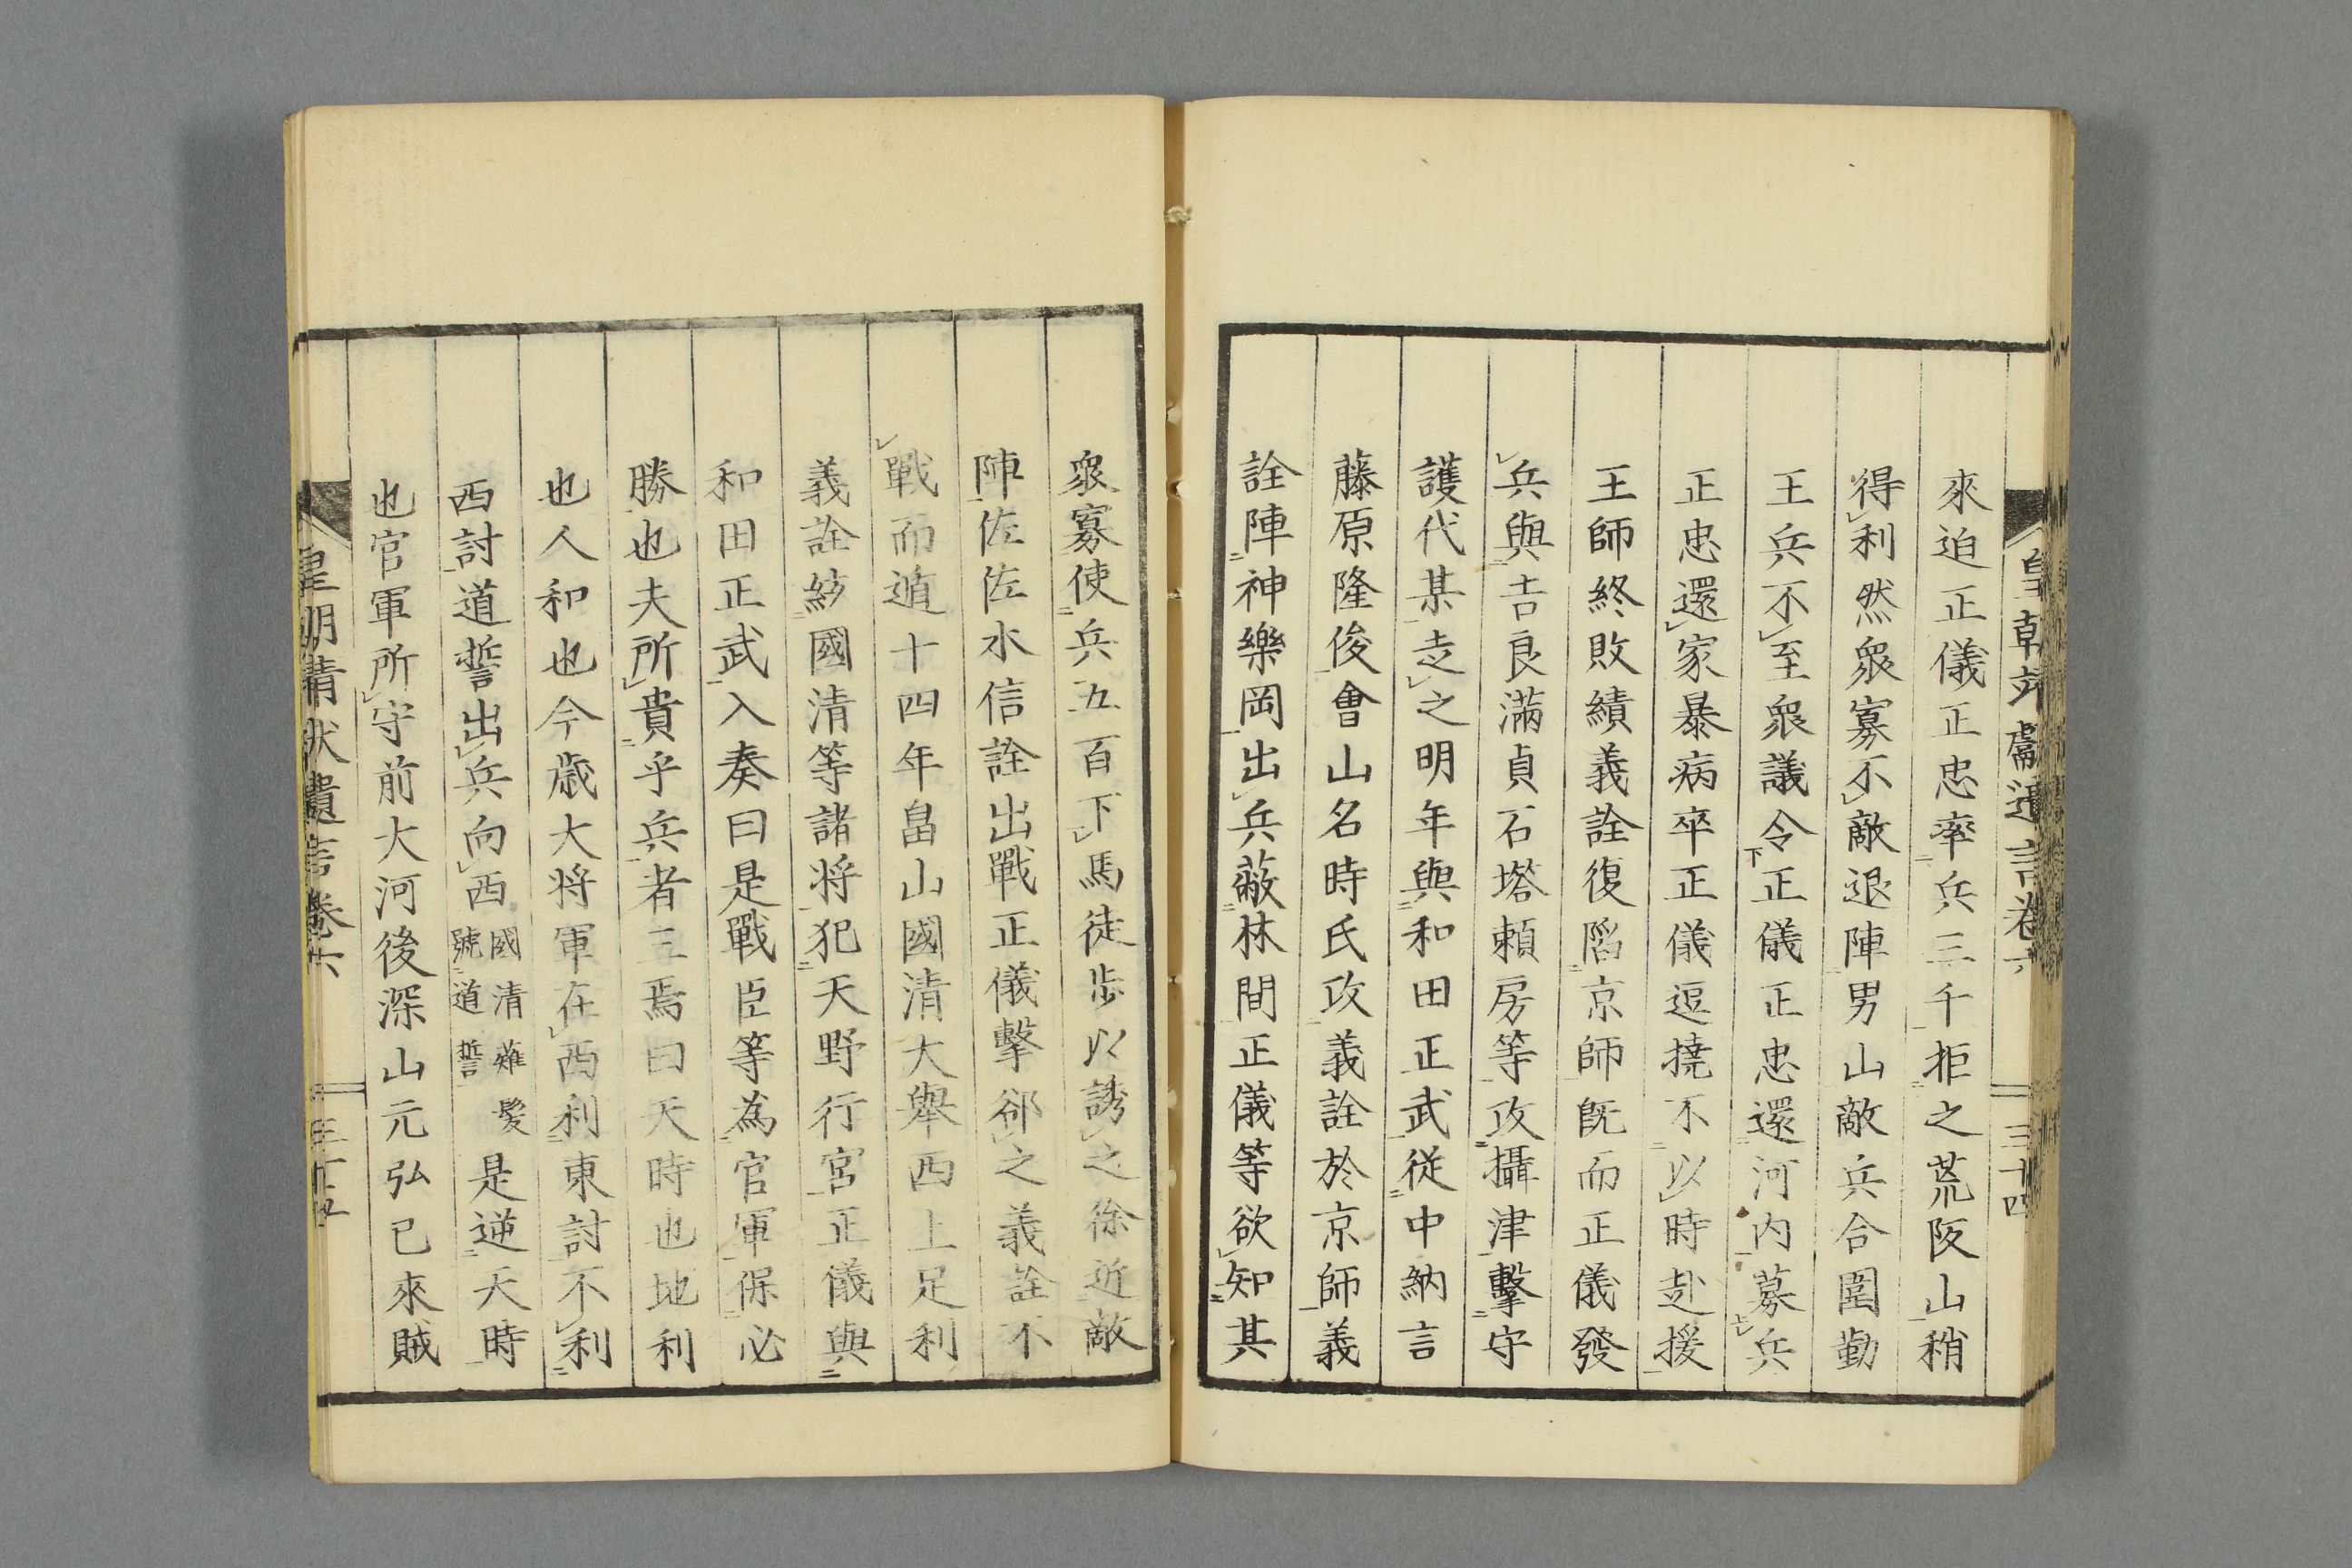 來迫正儀正忠率兵三千拒之荒阪山稍
得利然衆寡不敵退陣男山敵兵合圍勤
王兵不至衆議令正儀正忠還河内募兵
正忠還家暴病卒正儀逗撓不以時赴援
王師終敗績義詮復陷京師既而正儀發
兵與吉良滿貞石塔頼房等攻攝津擊守
護代某走之明年與和田正武從中納言
藤原隆俊會山名時氏攻義詮於京師義
詮陣神樂岡出兵蔽林間正儀等欲知其
衆寡使兵五百下馬徒歩以誘之徐近敵
陣佐佐木信詮出戰正儀擊郤之義詮不
戰而遁十四年畠山國清大舉西上足利
義詮紱國清等諸将犯天野行宮正儀與
和田正武入奏曰是戰臣等為官軍保必
勝也夫所貴乎兵者三焉曰天時也地利
也人和也今歲大将軍在西利東討不利
西討道誓出兵向西國清薙髮號道誓是逆天時
也官軍所守前大河後深山元弘已來賊
三十四